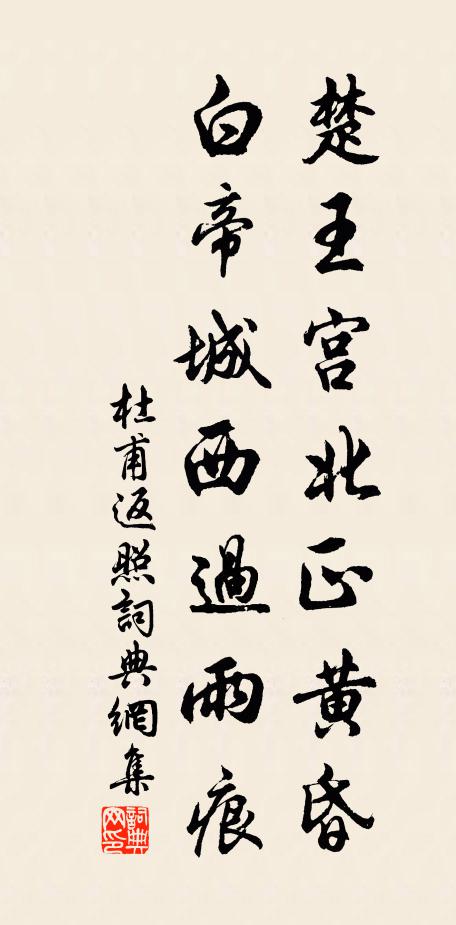 楚王宫北正黄昏
白帝城西過雨痕
杜甫返照詞典網集
詞典网印